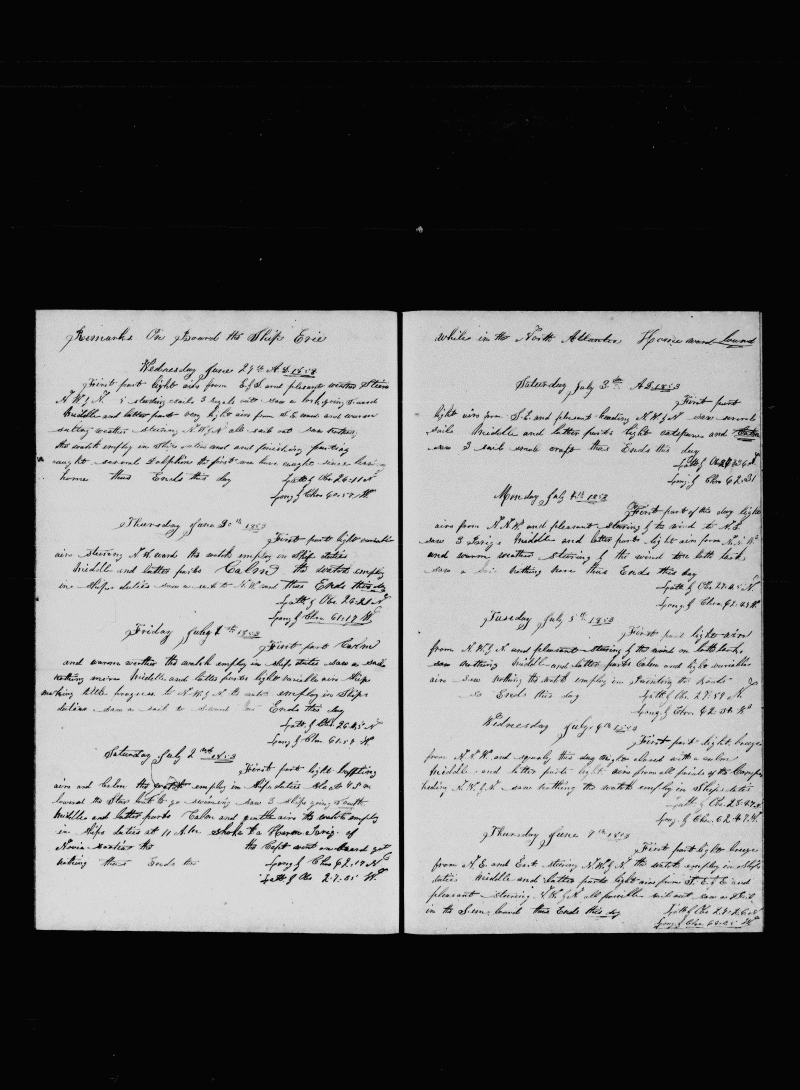 Remarks On Board the Ship Erie
Wednesday June 29th A.D. 1853
First part light airs from E.S.E and pleasant weather Steer
N.W.b.N. studding sails 3 royals sett saw a bark going S ward
Middle and latter part very light airs from S.E. ward and warm
sultry weather steering N.W.b.N all sail out saw nothing
the watch employ in Ships duties and finishing painting
caught several Dolphins the first we have caught since leaving
home thus Ends this day Latt by Obs 26.11 N
Long by Chro 60.57 W
Thursday June 30th 1853
First part light variable
airs steering N.W. ward the watch employ in Ship duties
Middle and latter parts Calm the watch employ
in ships duties saw a sail to N.W. and thus Ends this day
Latt by Obs 26.21 N
Long by Chro 61.17 W
Friday July 1th 1853
First part Calm
and warm weather the watch employ in ships duties saw a sail
nothing more Middle and latter parts light variable airs Ship
making little progress to N.W.b.N the watch employ in Ships
duties saw a sail to S ward Ends this day
Latt by Obs 26.45 N
Long by Chro 61.57 W
Saturday July 2nd 1853
First part light baffling
airs and Calm the watch employ in Ship duties
lowered the Star boat to go swiming saw 3 ships going South
Middle and latter parts Calm and gentle airs the watch employ
in ships duties at 11 A.M. spoke the Herm Brig of
Nova Scotia the the Capt went on board got
nothing thus Ends the Long by Chro 62.17 N
Latt by Obs 27.05 W
while in the North Atlantic Homeward bound
Saturday July 3th A.D 1853
First part
light airs from S.E. and pleasant heading N.W.b.N saw several
sails Middle and latter parts light catspaws and Calm
saw 3 sail small craft thus Ends this day
Latt by Obs 27.36 N
Long by Chro 62.31
Monday July 4th 1853
First part of this day light
airs from N.N.W. and pleasant steering by the wind to N.E.
saw 3 Brigs Middle and latter parts light air from N.N.W
and warm weather steering by the wind on both tack
saw a nothing more thus Ends this day
Latt by Obs 27.45 N
Long by Chro 62.43 W
Tuesday July 5th 1853
First part light airs
from N.W.b.N and pleasant steering by the wind on both tacks
saw nothing Middle and latter parts Calm and light variable
airs saw nothing the watch employ in painting the boats
so Ends this day Latt by Obs 27.59 N
Long by Chro 62.34 W
Wednesday July 6th 1853
First part light breeze
from N.N.W. and squaly this day begin closed with a calm
Middle and latter parts light airs from all points of the Compass
heding N.W.b.N saw nothing the watch employ in Ships duties
Latt by Obs 28.47 N
Long by Chro 62.47 W
Thursday June 7th 1853
First part light breeze
from N.E. and East steering N.W.b.N the watch employ in Ships
duties Middle and latter parts light airs from S.E.b.E and
pleasant steering N.W.b.N all possible sail out saw a Brig
in the S ward bound thus Ends this day Latt by Obs 29.26 N
Long by Chro 64.05 W